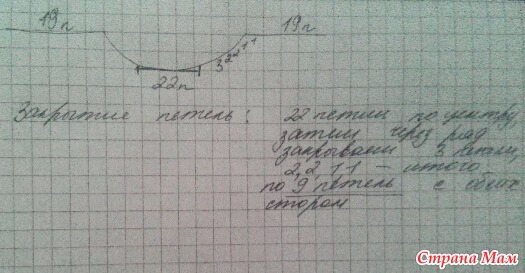 19п 19п
3 2 2 1 1
22п
Закрытие петель: 22 петли по центру,
затем через ряд
закрываем 3 петли,
2, 2, 1 1 - итого
по 9 петель с обеих
сторон
Страна Мам